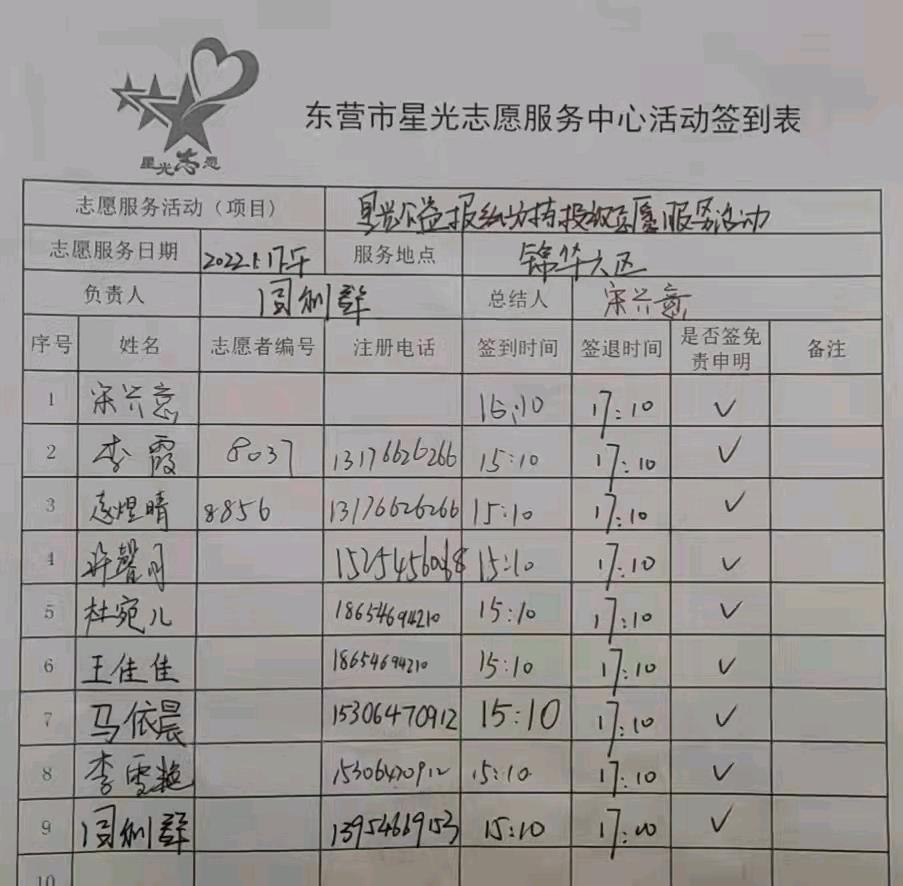 星光志愿
东营市星光志愿服务中心活动签到表
志愿服务活动（项目） 星光公益报纸分拣投放志愿服务活动
志愿服务日期 2022.1.17下午 服务地点 锦华六区
负责人 周利群 总结人 宋兴意
序号 姓名 志愿者编号 注册电话 签到时间 签退时间 是否签免责申明 备注
1 宋兴意 15:10 17:10 ✓
2 李霞 8037 13176626266 15:10 17:10 ✓
3 8856 13176626266 15:10 17:10 ✓
4 许馨月 15:10 17:10 ✓
5 杜宛儿 18654694210 15:10 17:10 ✓
6 王佳佳 18654694210 15:10 17:10 ✓
7 马依晨 15306470912 15:10 17:10 ✓
8 李雪艳 15306470912 15:10 17:10 ✓
9 周利群 13954669153 15:10 17:00 ✓
10